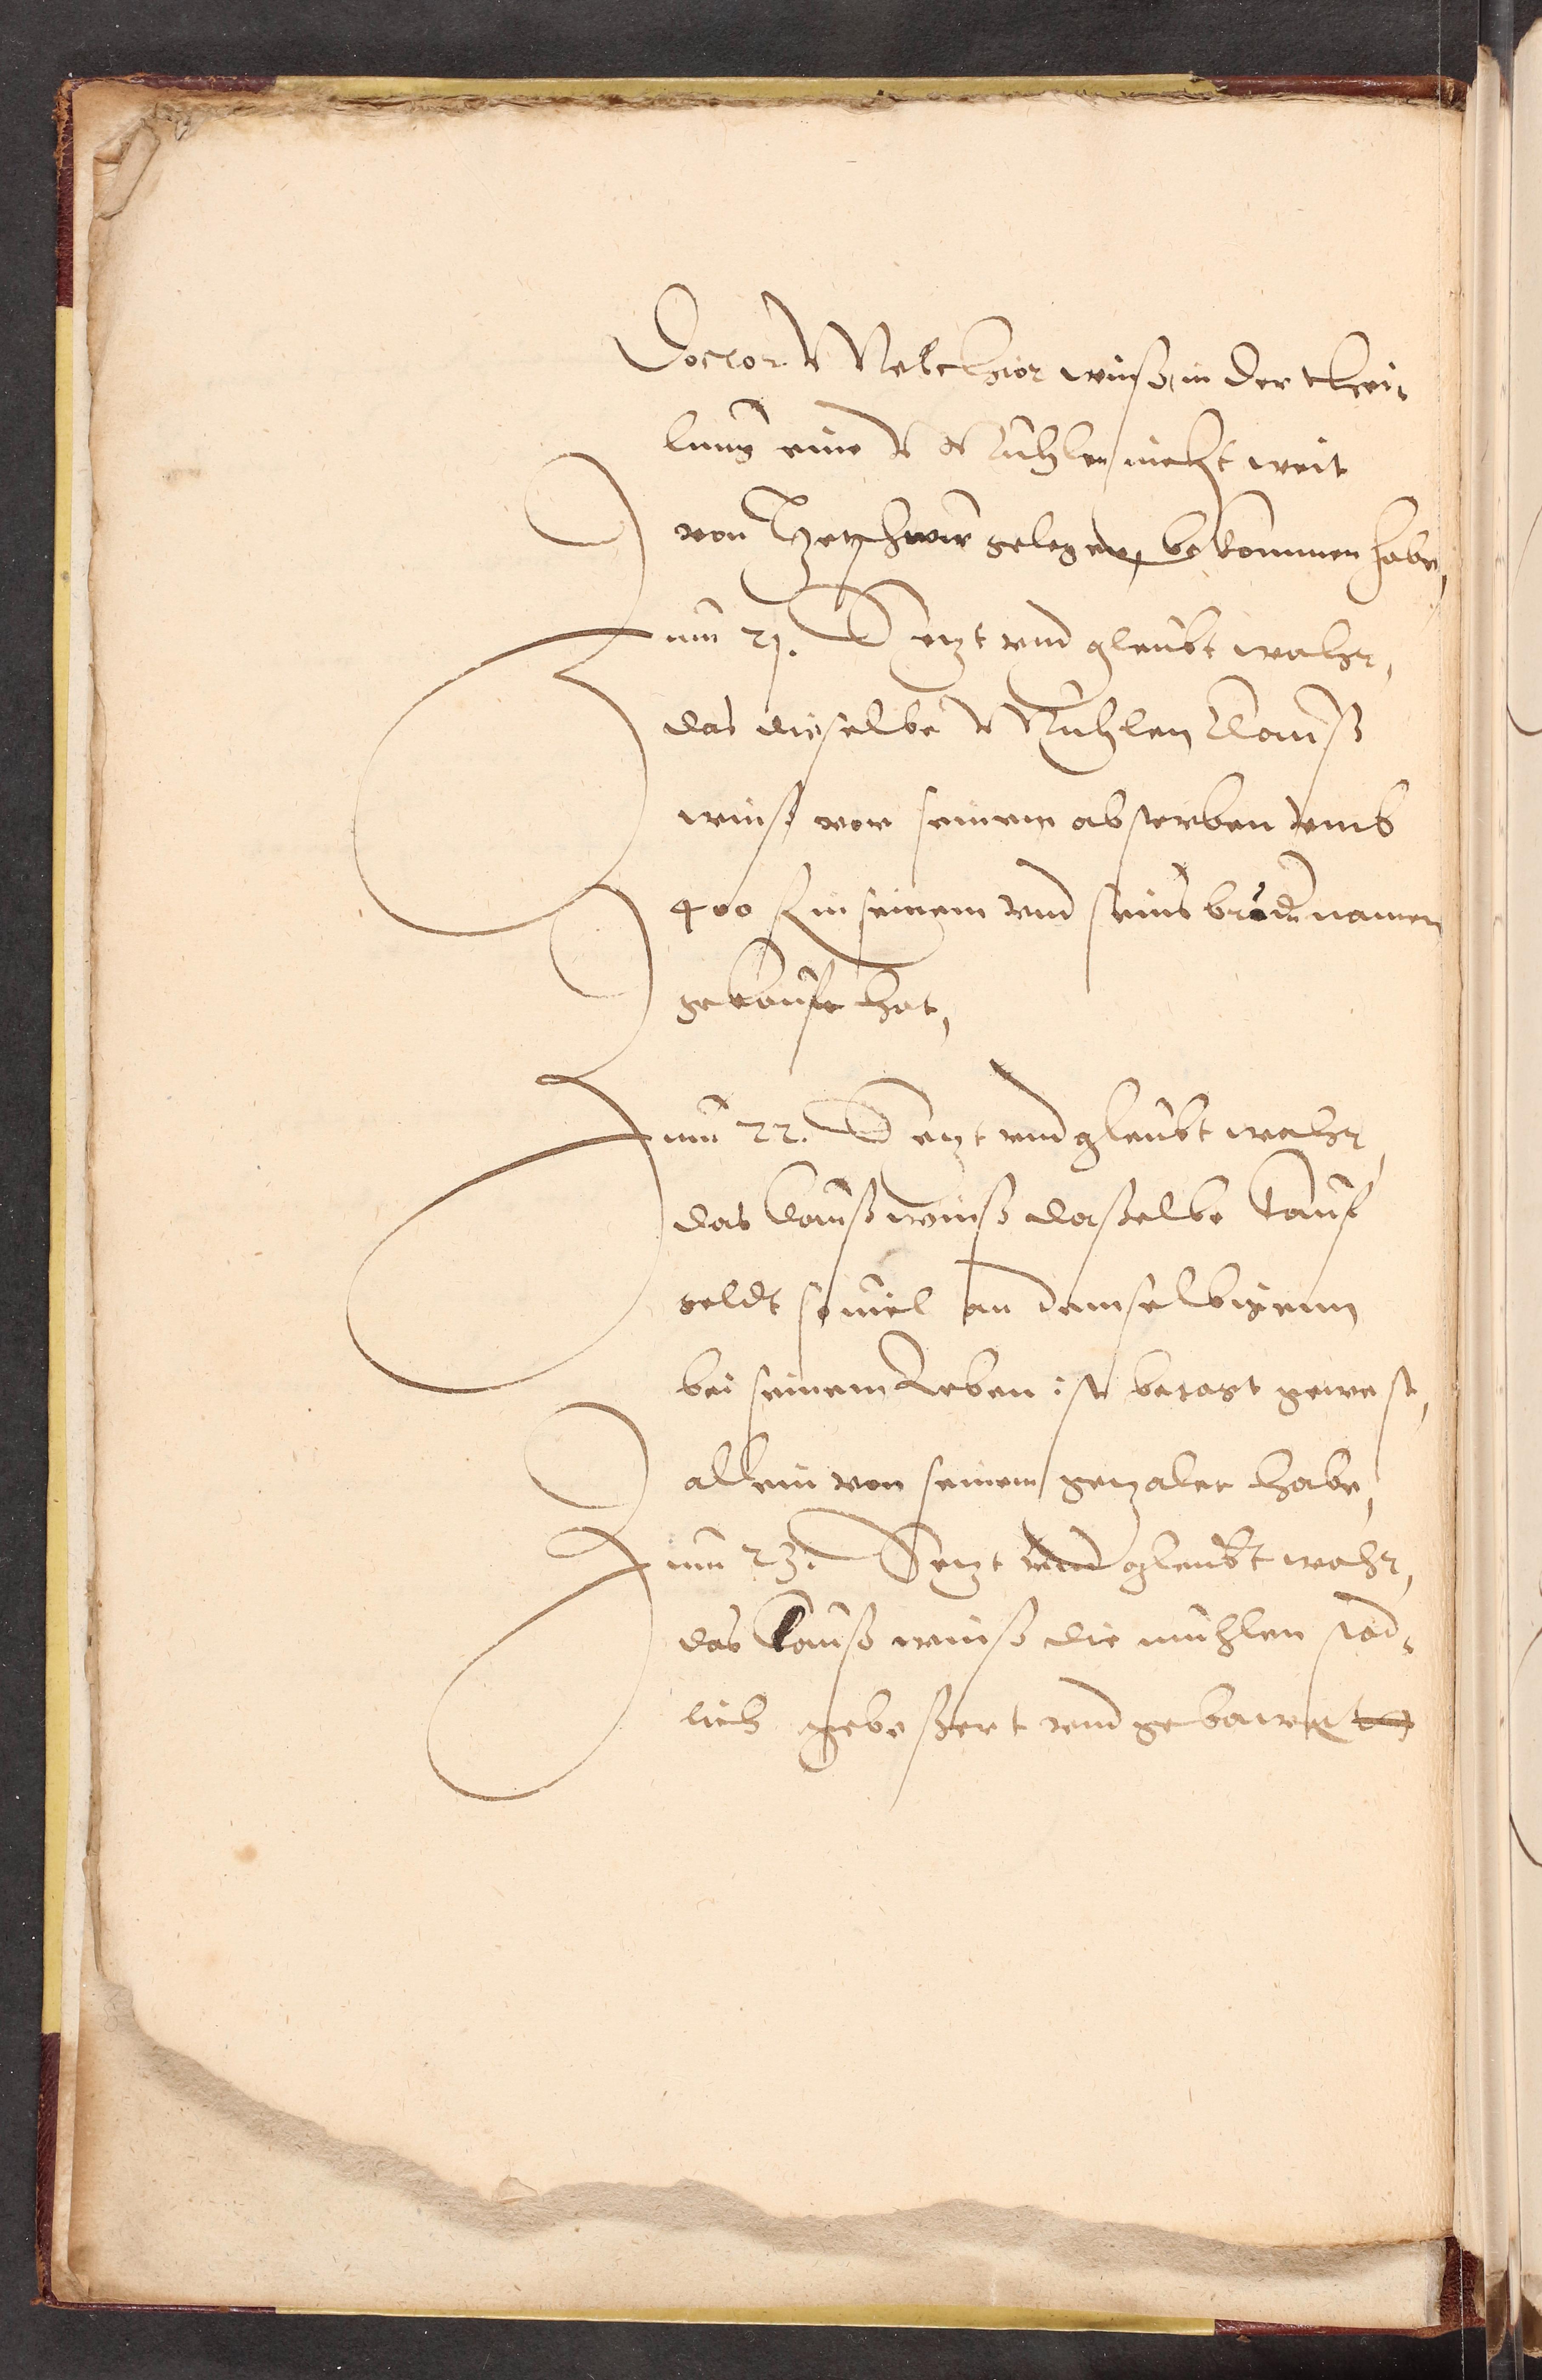 Doctor Melchior winß, in der thei¬
lung eine Muhlen nicht weit
von gelegen, bekommen habe,
Zum 21. Setzt vnd gleubt wahr,
das dieselbe Muhlen Clauß
winß vor seinem absterben vmb
400 fl in seinem vnd seins bruder namen
gekauft hat,
Zum 22. Setzt vnd gleubt wahr,
das Clauß winß dasselbe kauf
geldt souiel an demselbigenn
bei seinem Leben ist betagt gewest,
allein von seinem getzalet habe,
Zum 23. Setzt vnd gleubt wahr,
das Clauß winß die muhlen stad¬
lich gebessert vnd gebawet